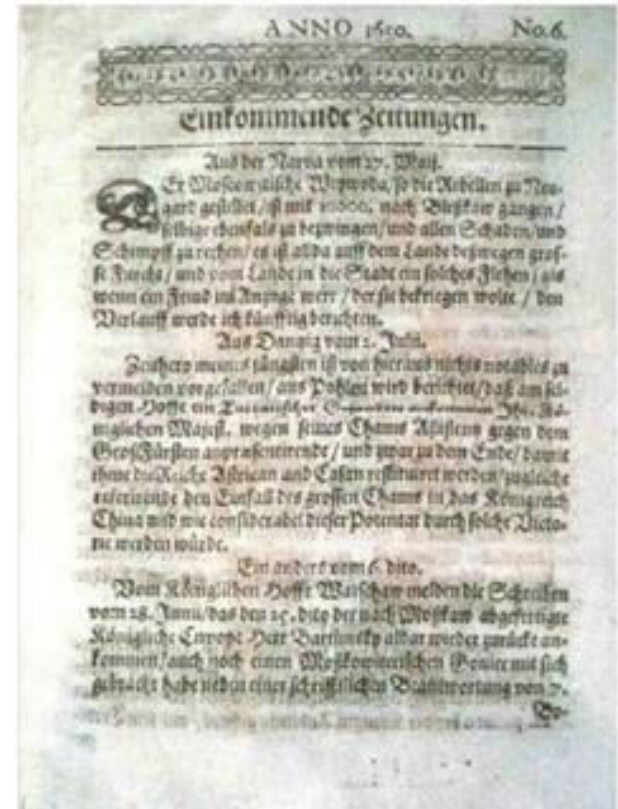 ANNO 1650. No. 6.
Einkommende Zeitungen.
Aus der Narva vom 27. Maij.
Er Moscowitische Weywoda/ so die Rebellen zu Neu-
gard gestellet/ ist mit 10000. nach Pleßkaw gangen/
selbige ebenfals zu bezwingen/ und allen Schaden/ und
Schimpff zu rechen/ es ist allda auff dem Lande deßwegen gros-
se Furcht/ und vom Lande in die Stadt ein solches Flehen/ als
wenn ein Feind im Anzuge wert/ der sie bekriegen wolte/ den
Verlauff werde ich künfftig berichten.
Aus Dantzig vom 2. Julii.
Zeithero meines jüngsten ist von hieraus nichts notables zu
vermelden vorgefallen/ aus Pohlen wird berichtet/ daß am sel-
bigen Hoffe ein Tartarischer ankommen Ihr. Kö-
niglichen Majest. wegen seines Chams Assistens gegen dem
GrosFürsten anpræsentirende/ und zwar zu dem Ende/ damit
ihme die Reiche Astrican und Casan restituiret werden/ zugleiche
referirende den Einfall des grossen Chams in das Königreich
China und wie considerabel dieser Potentat durch solche Victo-
rie werden würde.
Ein anders vom 6. dito.
Vom Königlichen Hoffe Warschaw melden die Schreiben
vom 28. Junii/ das den 25. dito der nach Moßkaw abgefertigte
Königliche Envoye Herr Bartlinsky aldar wieder zurücke an-
kommen/ auch noch einen Moßkowiterischen mit sich
gebracht habe neben einer schrifftlichen Beantwortung von 7.
Bo-